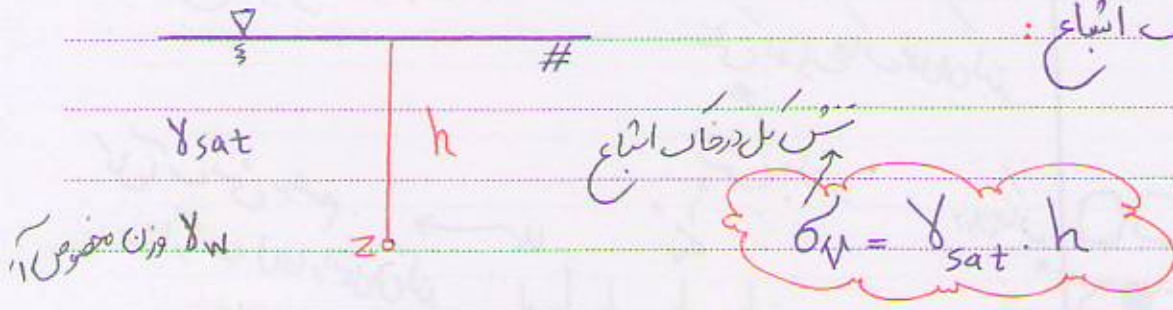 اشباع :
γsat
h
تنش کل در خاک اشباع
γw وزن مخصوص آ
z
σv = γsat . h